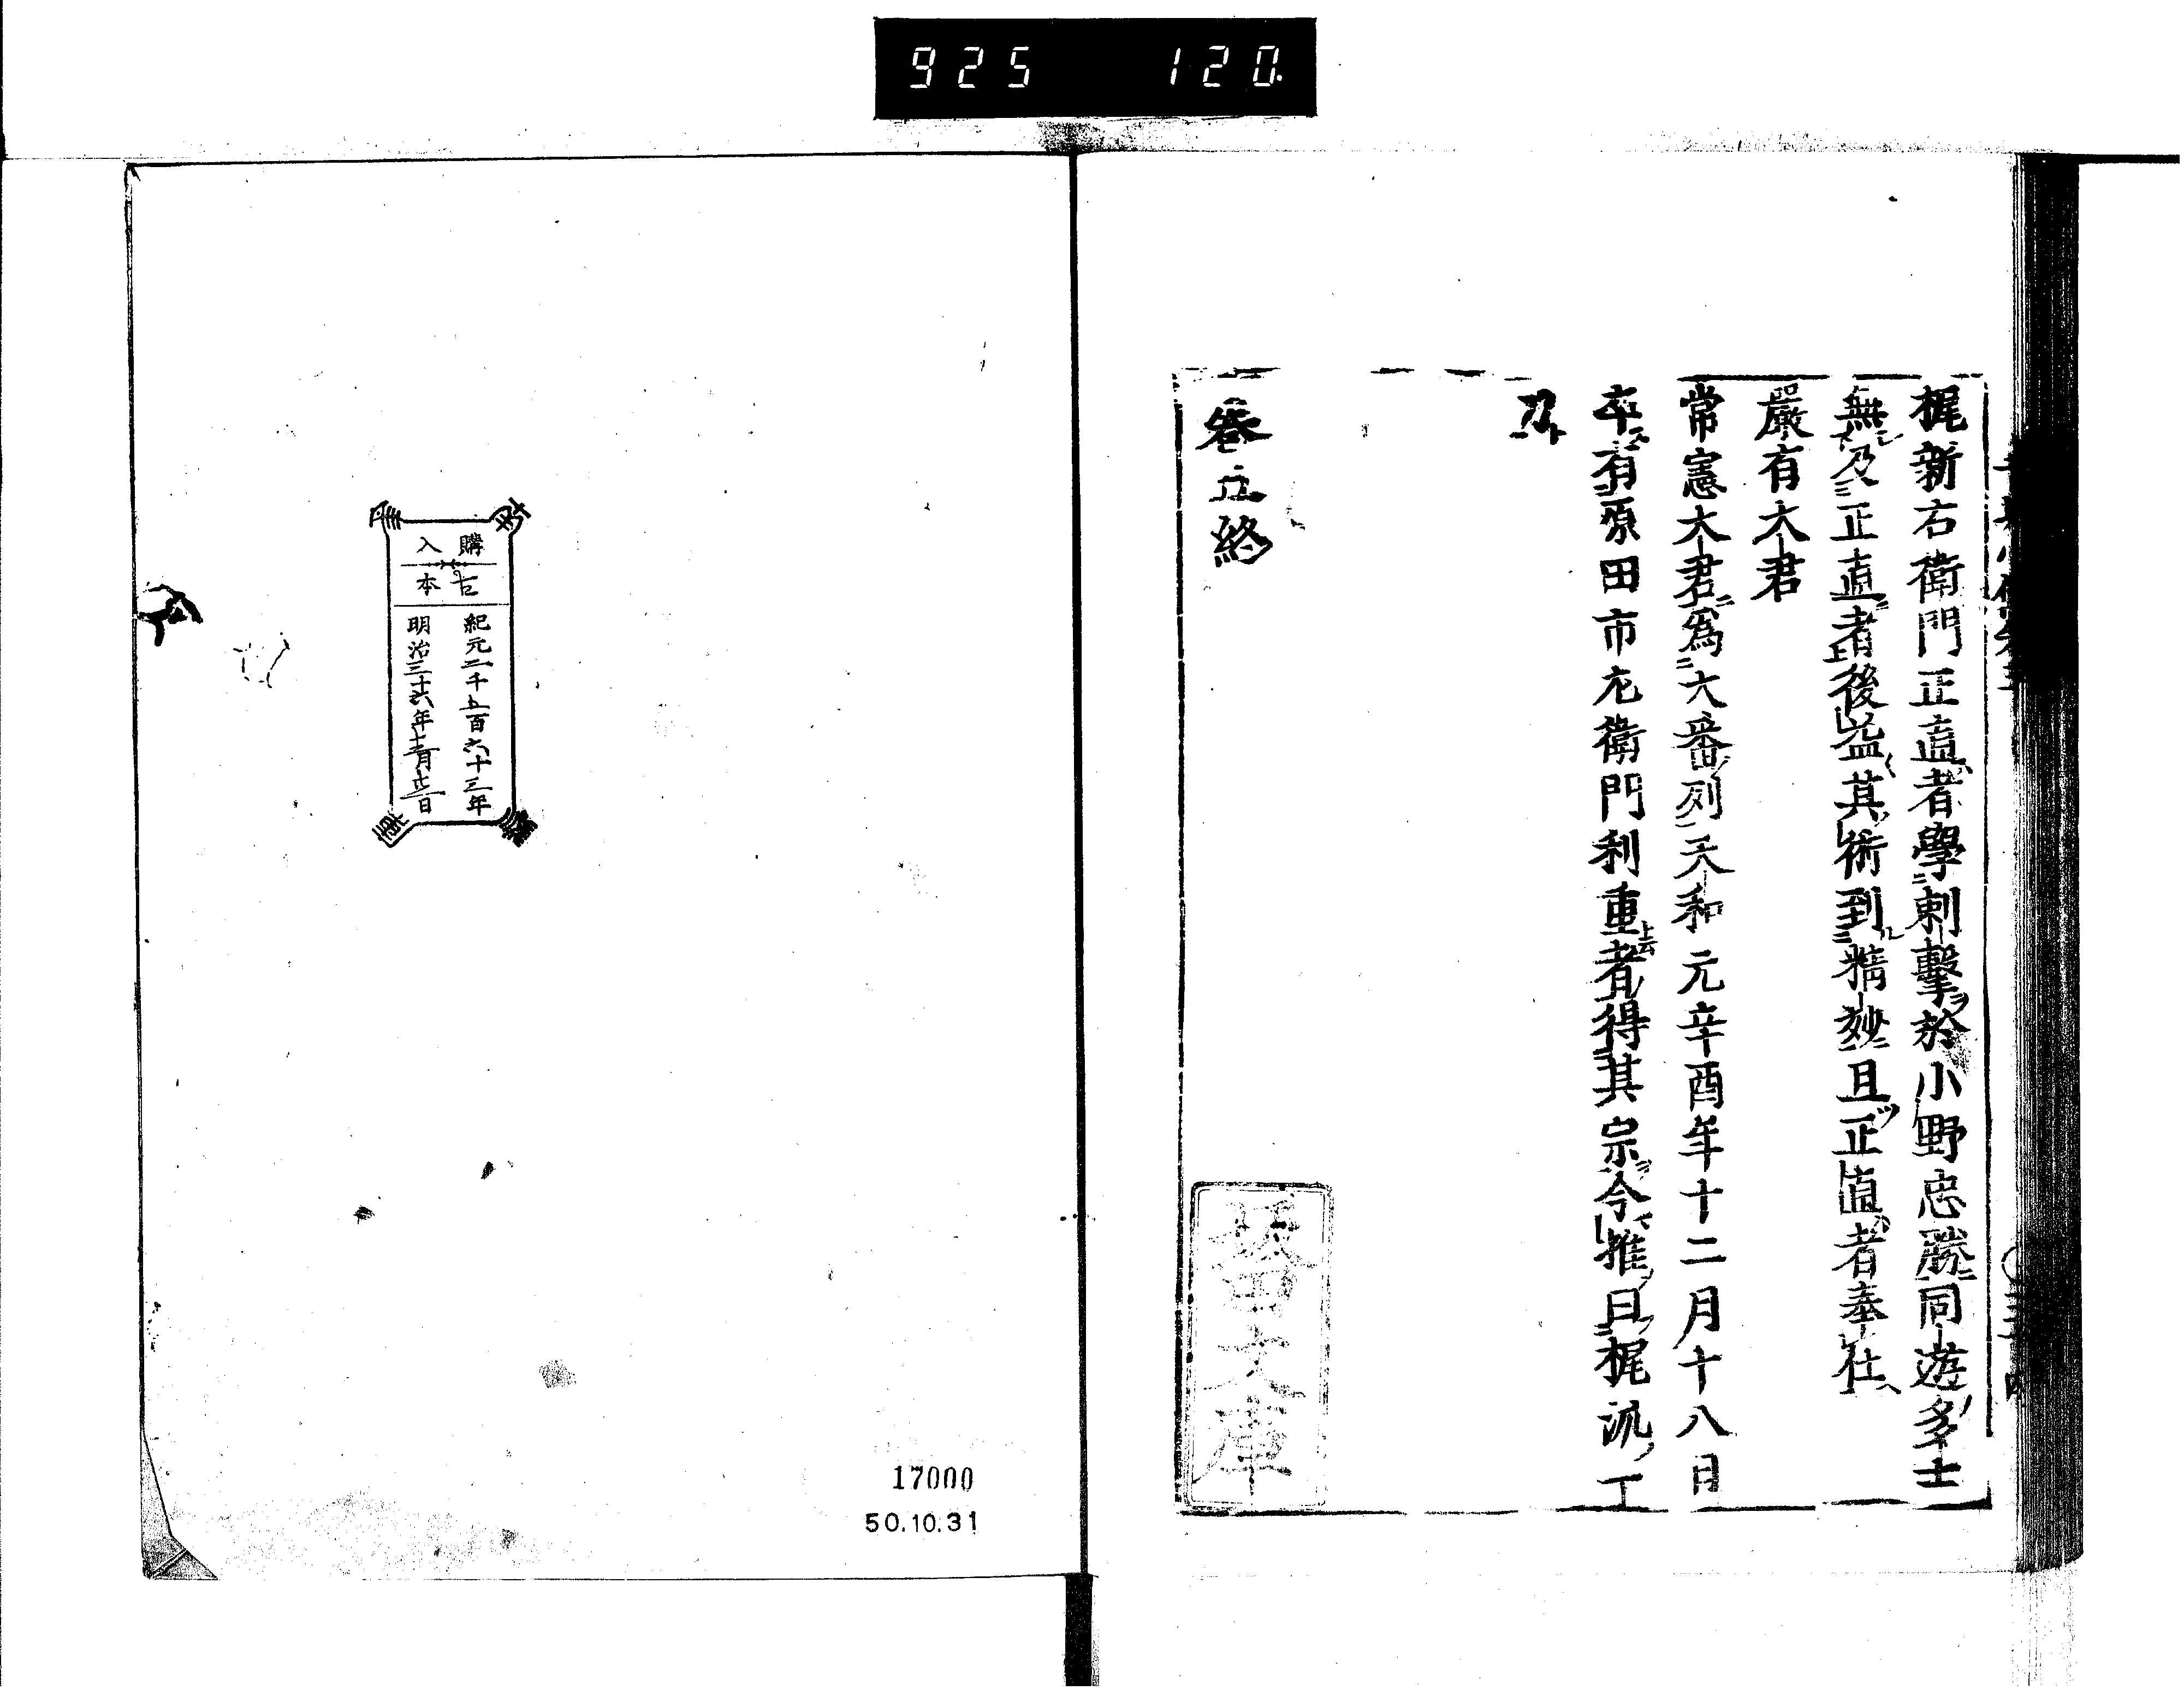 925 120
梶新右衛門正直者學刺擊於小野忠勝同遊多士
無及正直者後益其術到精妙且正直者奉仕
嚴有大君
常憲大君為大番列天和元辛酉年十二月十八日
卒有原田市左衛門利重者得其宗今推曰梶派工
刀
卷五終
文庫
購入
古本
紀元二千五百六十三年
明治三十六年
17000
50.10.31